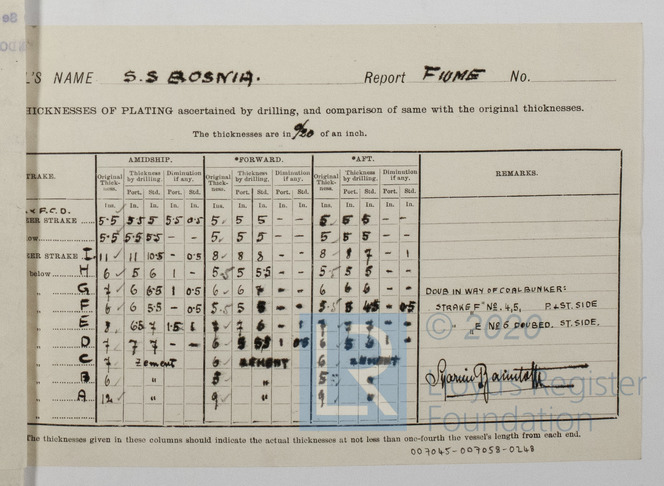 L'S NAME S.S BOSNIA. Report FIUME No.
HICKNESSES OF PLATING ascertained by drilling, and comparison of same with the original thicknesses.
The thicknesses are in /20 of an inch.
TRAKE. AMIDSHIP. *FORWARD. *AFT. REMARKS.
Original Thick-ness. Thickness by drilling. Diminution if any. Original Thick-ness. Thickness by drilling. Diminution if any. Original Thick-ness. Thickness by drilling. Diminution if any.
Port. Std. Port. Std. Port. Std. Port. Std. Port. Std. Port. Std.
Ins. In. In. In. In. Ins. In. In. In. In. Ins. In. In. In. In.
F.C.D.
ER STRAKE 5.5 5.5 5 5.5 0.5 5 5 5 - - 5 5 5 - -
low 5.5 5.5 5.5 - - 5 5 5 5 5 5
ER STRAKE I 11 11 10.5 - 0.5 8 8 8 - - 8 8 7 - 1
below H 6 5 6 1 - 5.5 5 5.5 - - 5.5 5 5 - -
G 7 6 6.5 1 0.5 6 6 - - 6 6 6 - - DOUB IN WAY OF COALBUNKER:
F 6 6 5.5 - 0.5 5.5 5 - - 5.5 5 4.5 - 0.5 STRAKE F" No. 4,5, P. & ST. SIDE
E 8 6.5 7 1.5 7 6 - - 7 - - " E No 6 DOUBED. ST. SIDE.
D 7 7 7 - - 6 5 1 6 5 1
C 7 Zement 6 ZEMENT 6 ZEMENT
B 6 " 5 " 5 "
A 12 " 9 " 9 "
" "
The thicknesses given in these columns should indicate the actual thicknesses at not less than one-fourth the vessel's length from each end.
007045-007058-0248
© 2020
Lloyd's Register
Foundation
LR